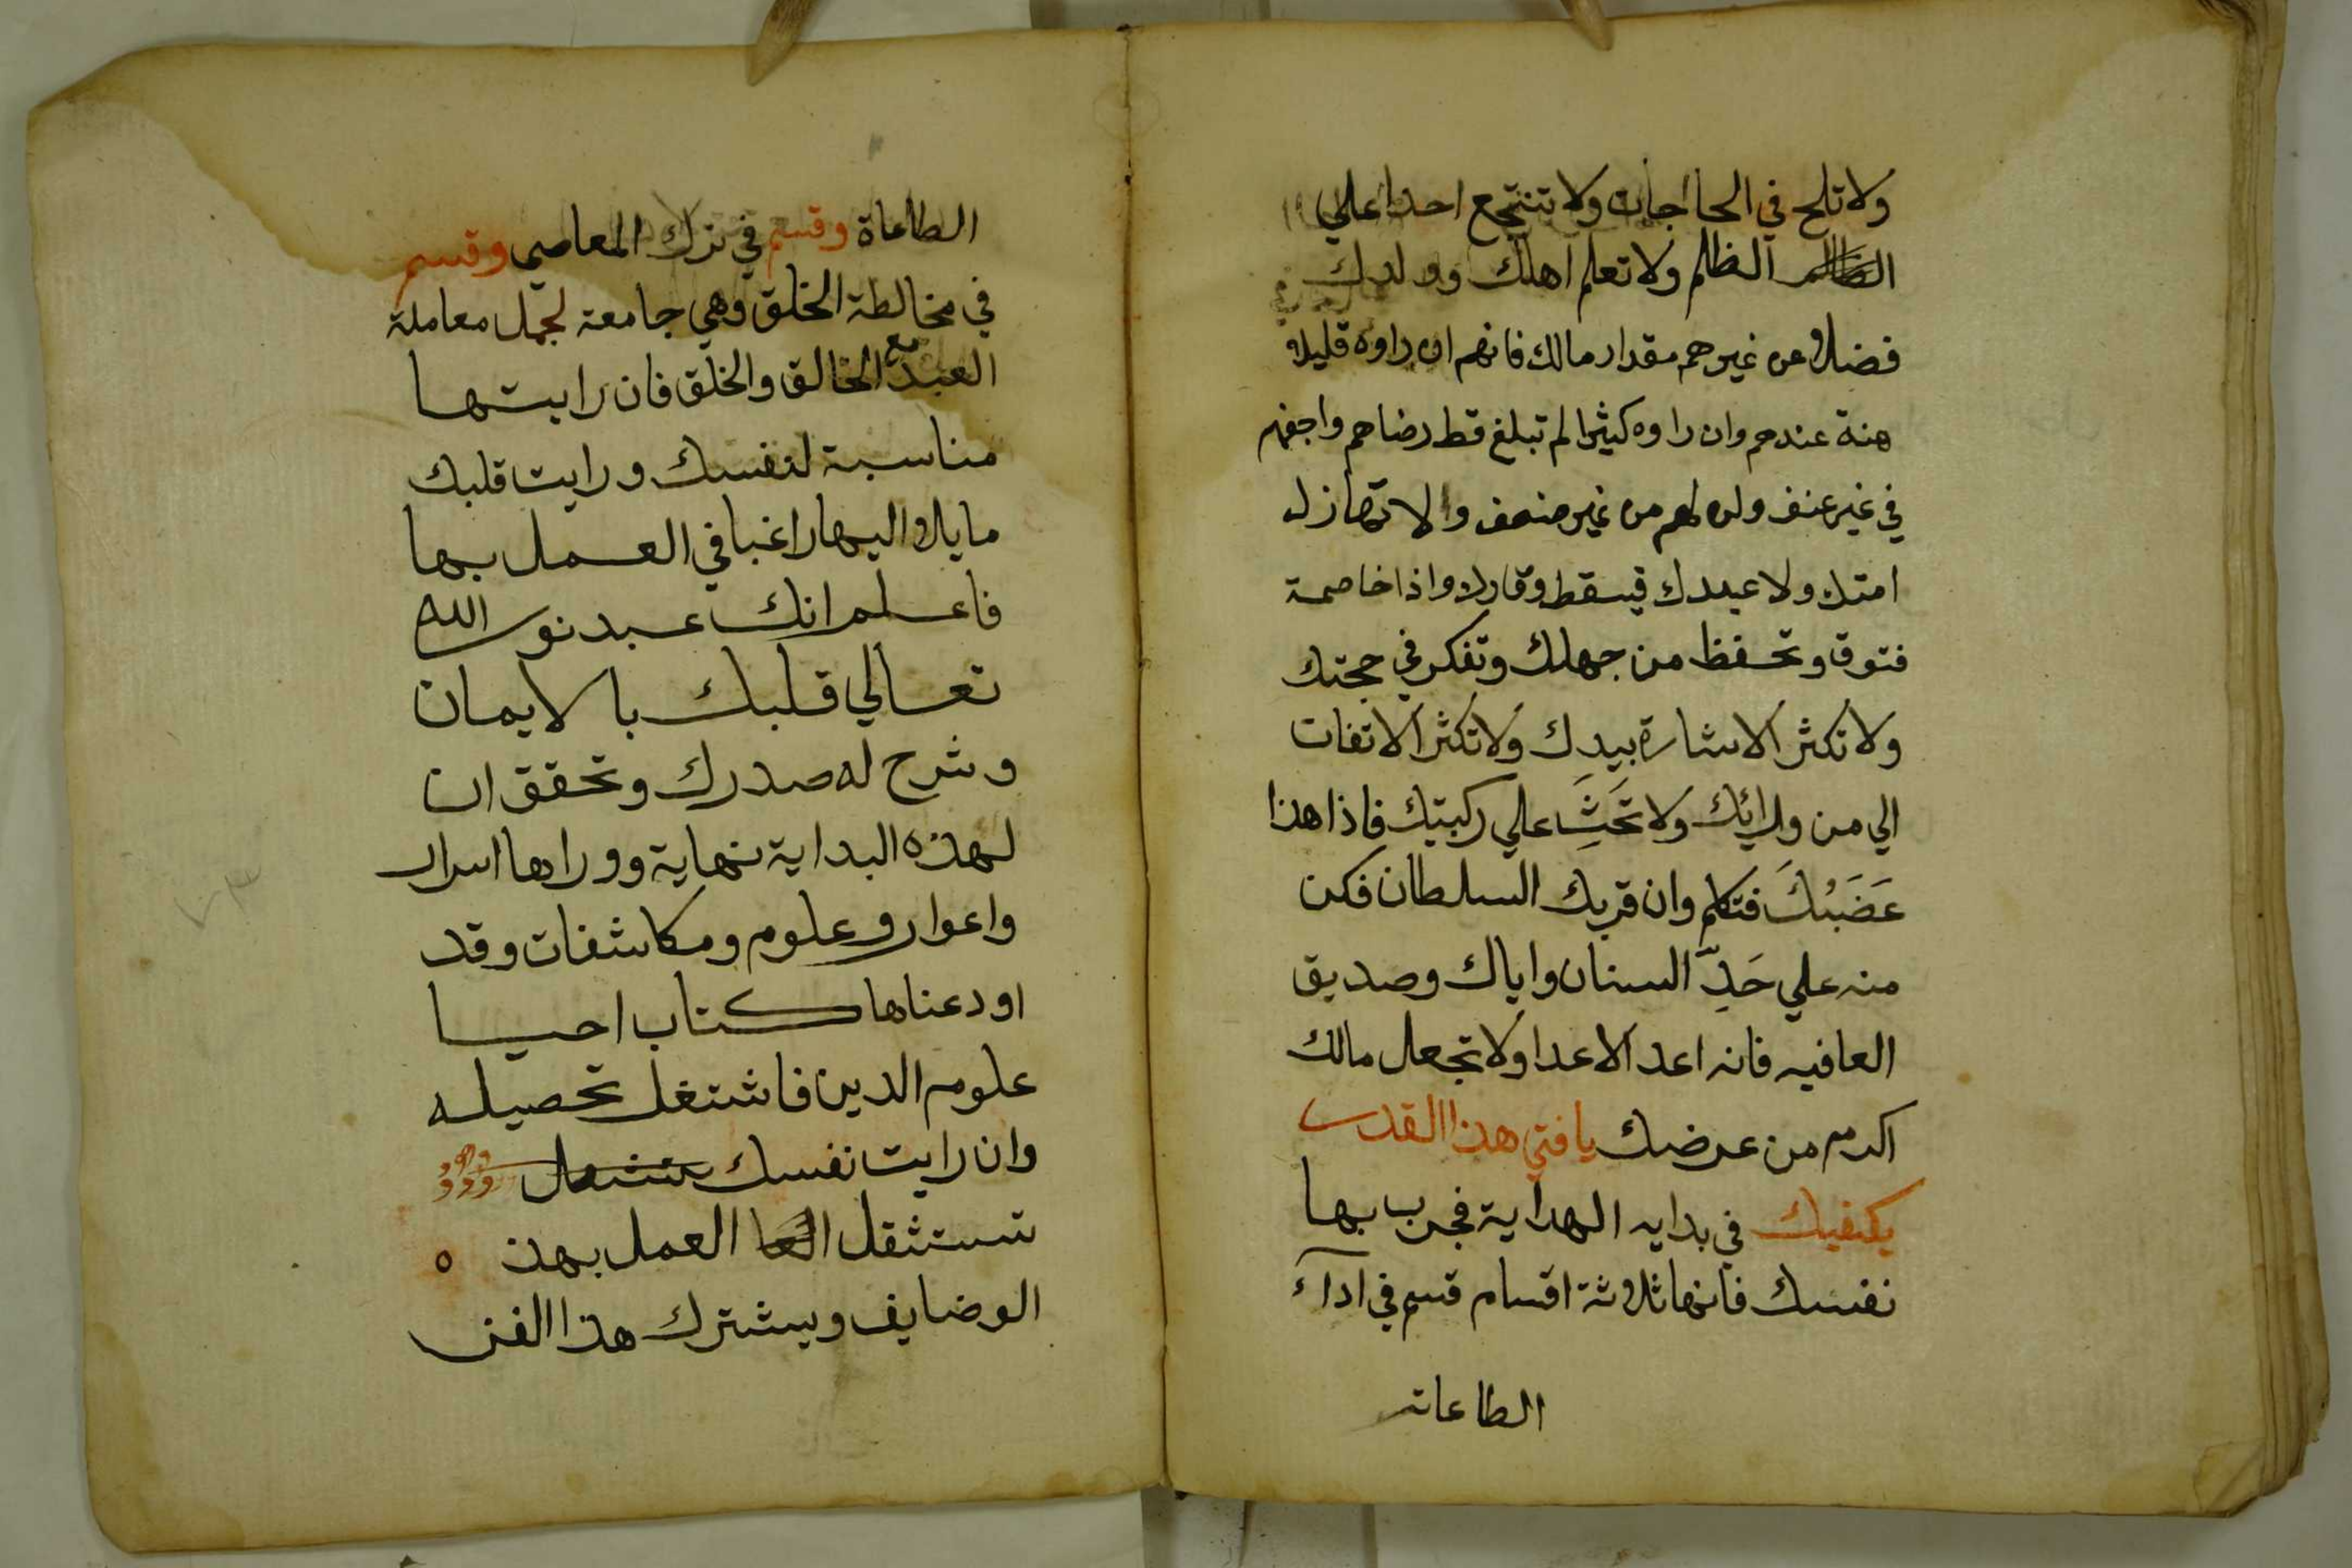 ولا تلح في الحاجات ولا تنتجع احدا علي
الظلم ولا تعلم اهلك وولدك
فضلا عن غيرهم مقدار مالك فانهم ان راوه قليلا
هنة عندهم وان راوه كثيرا لم تبلغ قط رضاهم واجفهم
في غير عنف ولن لهم من غير ضعف والا تهازل
امتك ولا عبدك فيسقط وقارك واذا خاصمة
فتوق وتحفظ من جهلك وتفكر في حجتك
ولا تكثر الاشارة بيدك ولا تكثر الاتفات
الي من ورائك ولا تَحَثِ علي ركبتيك فاذا هذا
غَضَبُكَ فتكلم وان قربك السلطان فكن
منه علي حَدِّ السنان واياك وصديق
العافيه فانه اعد الاعدا ولا تجعل مالك
اكرم من عرضك يا فتي هذا القدر
يكفيك في بدايه الهداية فجرب بها
نفسك فانها ثلاثة اقسام قسم في ادآء
الطاعات
الطاعاة وقسم في ترك المعاصي وقسم
في مخالطة الخلق وهي جامعة لجمل معاملة
العبد مع الخالق والخلق فان رايتها
مناسبة لنفسك ورايت قلبك
مايلا اليها راغبا في العمل بها
فاعلم انك عبد نور الله
تعالي قلبك بالايمان
وشرح له صدرك وتحقق ان
لهذه البداية نهاية ووراها اسرار
واعوار وعلوم ومكاشفات وقد
اودعناها كتاب احيا
علوم الدين فاشتغل تحصيله
وان رايت نفسك
تستثقل العمل بهذه
الوضايف ويشترك هذا الفن
٧٣